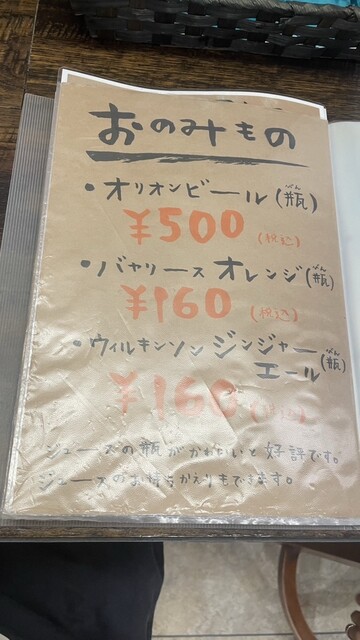 おのみもの
・オリオンビール(瓶)
びん
¥500 (税込)
・バヤリース オレンジ(瓶)
びん
¥160 (税込)
・ウィルキンソン ジンジャーエール(瓶)
びん
¥160 (税込)
ジュースの瓶がかわいいと好評です。
ジュースのお持ちかえりもできます。